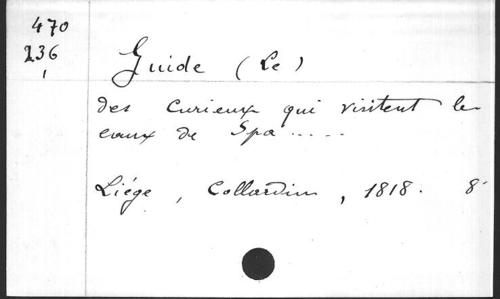 470
236
1
Guide (Le)
des curieux qui visitent les
eaux de Spa .....
Liége, Collardin, 1818. 8°